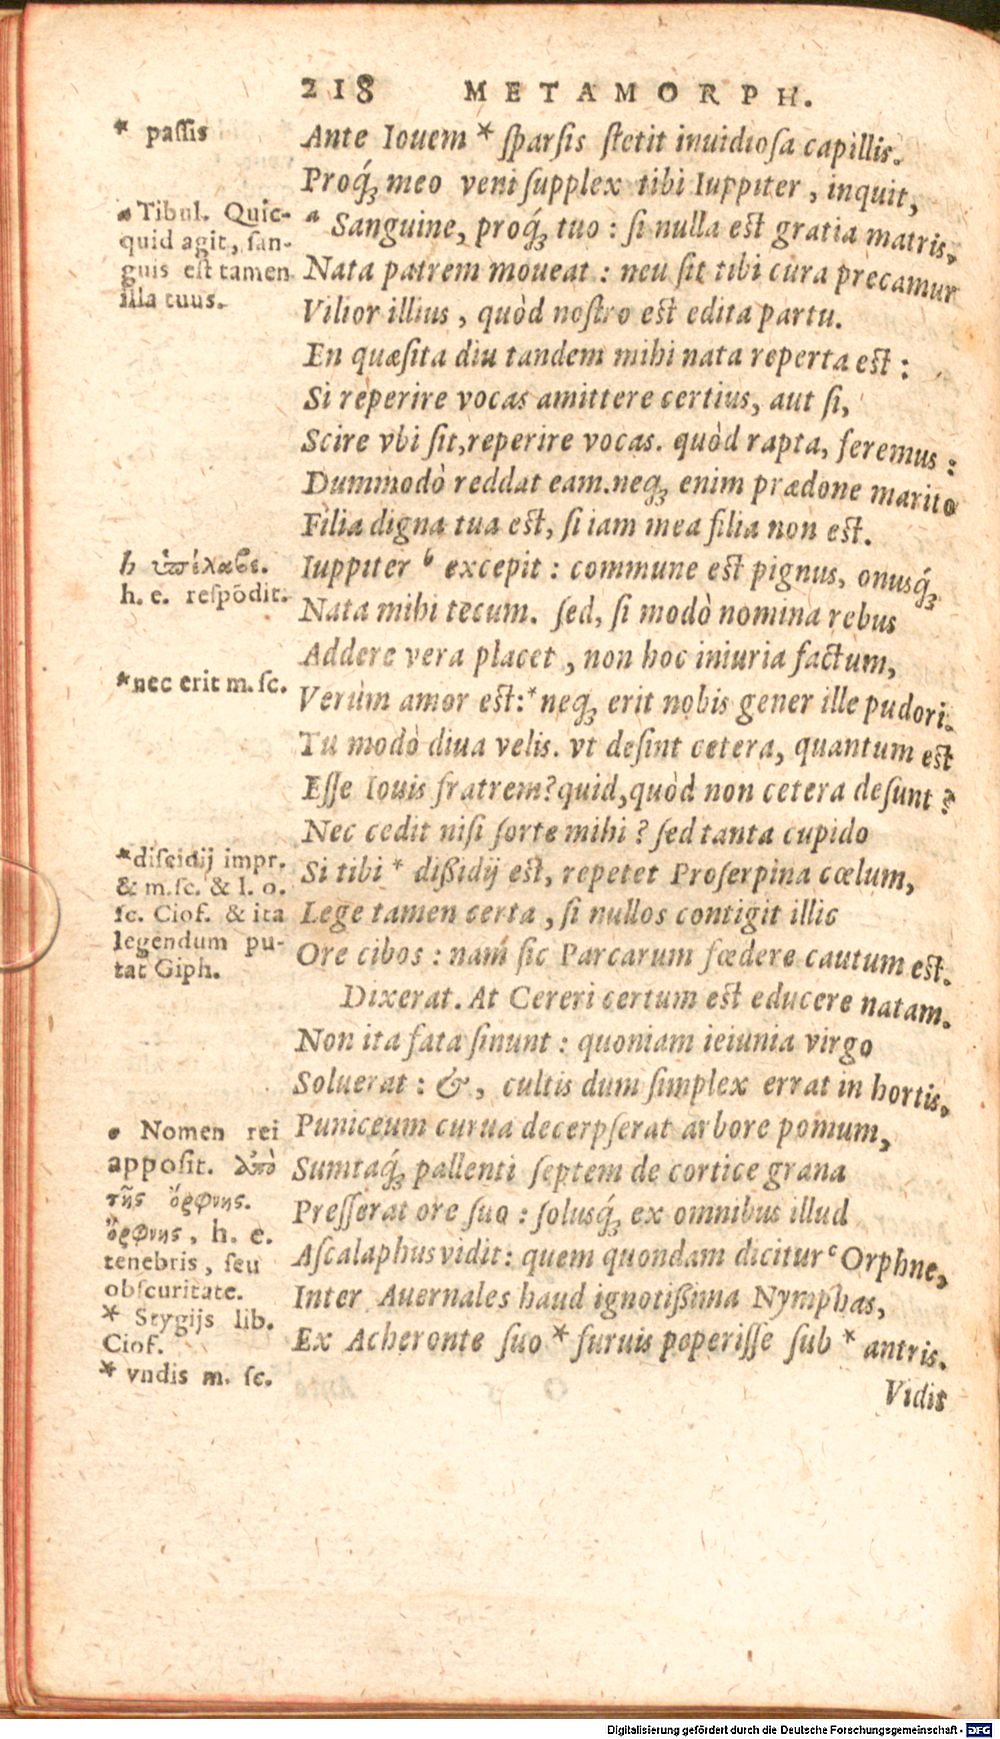 218 METAMORPH.
* paſſis
Ante Iouem * ſparſis ſtetit inuidioſa capillis.
Proq́ꝫ meo veni ſupplex tibi Iuppiter, inquit,
a Tibul. Quic-
quid agit, ſan-
guis eſt tamen
illa tuus.
a Sanguine, proq́ꝫ tuo: ſi nulla eſt gratia matris,
Nata patrem moueat: neu ſit tibi cura precamur
Vilior illius, quòd noſtro eſt edita partu.
En quæſita diu tandem mihi nata reperta eſt:
Si reperire vocas amittere certius, aut ſi,
Scire vbi ſit, reperire vocas. quòd rapta, feremus:
Dummodò reddat eam. neqꝫ enim prædone marito
Filia digna tua eſt, ſi iam mea filia non eſt.
b ὑπέλαβε.
h. e. reſpõdit.
Iuppiter b excepit: commune eſt pignus, onusq́ꝫ
Nata mihi tecum. ſed, ſi modò nomina rebus
Addere vera placet, non hoc iniuria factum,
*nec erit m. ſc.
Verùm amor eſt:* neqꝫ erit nobis gener ille pudori.
Tu modò diua velis. vt deſint cetera, quantum eſt
Eſſe Iouis fratrem? quid, quòd non cetera deſunt?
Nec cedit niſi forte mihi? ſed tanta cupido
*diſcidij impr.
& m. ſc. & l. o.
ſc. Ciof. & ita
legendum pu-
tat Giph.
Si tibi * dißidij eſt, repetet Proſerpina cœlum,
Lege tamen certa, ſi nullos contigit illic
Ore cibos: nam ſic Parcarum fœdere cautum eſt.
Dixerat. At Cereri certum eſt educere natam.
Non ita fata ſinunt: quoniam ieiunia virgo
Soluerat: &, cultis dum ſimplex errat in hortis,
c Nomen rei
appoſit. ἀπὸ
τῆς ὄρφνης.
ὄρφνης, h. e.
tenebris, ſeu
obſcuritate.
* Stygijs lib.
Ciof.
* vndis m. ſc.
Puniceum curua decerpſerat arbore pomum,
Sumtaq́ꝫ pallenti ſeptem de cortice grana
Preſſerat ore ſuo: ſolusq́ꝫ ex omnibus illud
Aſcalaphus vidit: quem quondam dicitur c Orphne,
Inter Auernales haud ignotißima Nymphas,
Ex Acheronte ſuo * furuis peperiſſe ſub * antris.
Vidit
Digitalisierung gefördert durch die Deutsche Forschungsgemeinschaft - DFG